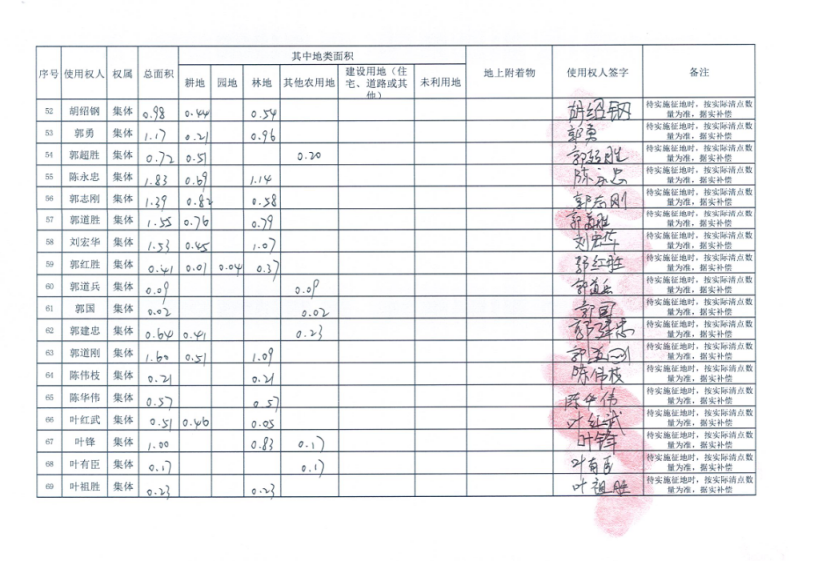 序号 使用权人 权属 总面积 其中地类面积 地上附着物 使用权人签字 备注
耕地 园地 林地 其他农用地 建设用地（住宅、道路或其他） 未利用地
52 胡绍钢 集体 0.98 0.44 0.54 胡绍钢 待实施征地时，按实际清点数量为准，据实补偿
53 郭勇 集体 1.17 0.21 0.96 郭勇 待实施征地时，按实际清点数量为准，据实补偿
54 郭超胜 集体 0.72 0.51 0.20 郭超胜 待实施征地时，按实际清点数量为准，据实补偿
55 陈永忠 集体 1.83 0.69 1.14 陈永忠 待实施征地时，按实际清点数量为准，据实补偿
56 郭志刚 集体 1.39 0.82 0.58 郭志刚 待实施征地时，按实际清点数量为准，据实补偿
57 郭道胜 集体 1.55 0.76 0.79 郭道胜 待实施征地时，按实际清点数量为准，据实补偿
58 刘宏华 集体 1.53 0.45 1.07 刘宏华 待实施征地时，按实际清点数量为准，据实补偿
59 郭红胜 集体 0.41 0.01 0.04 0.37 郭红胜 待实施征地时，按实际清点数量为准，据实补偿
60 郭道兵 集体 0.09 0.09 郭道兵 待实施征地时，按实际清点数量为准，据实补偿
61 郭国 集体 0.02 0.02 郭国 待实施征地时，按实际清点数量为准，据实补偿
62 郭建忠 集体 0.64 0.41 0.23 郭建忠 待实施征地时，按实际清点数量为准，据实补偿
63 郭道刚 集体 1.60 0.51 1.09 郭道刚 待实施征地时，按实际清点数量为准，据实补偿
64 陈伟枝 集体 0.21 0.21 陈伟枝 待实施征地时，按实际清点数量为准，据实补偿
65 陈华伟 集体 0.57 0.57 陈华伟 待实施征地时，按实际清点数量为准，据实补偿
66 叶红武 集体 0.51 0.46 0.05 叶红武 待实施征地时，按实际清点数量为准，据实补偿
67 叶锋 集体 1.00 0.83 0.17 叶锋 待实施征地时，按实际清点数量为准，据实补偿
68 叶有臣 集体 0.17 0.17 叶有臣 待实施征地时，按实际清点数量为准，据实补偿
69 叶祖胜 集体 0.23 0.23 叶祖胜 待实施征地时，按实际清点数量为准，据实补偿